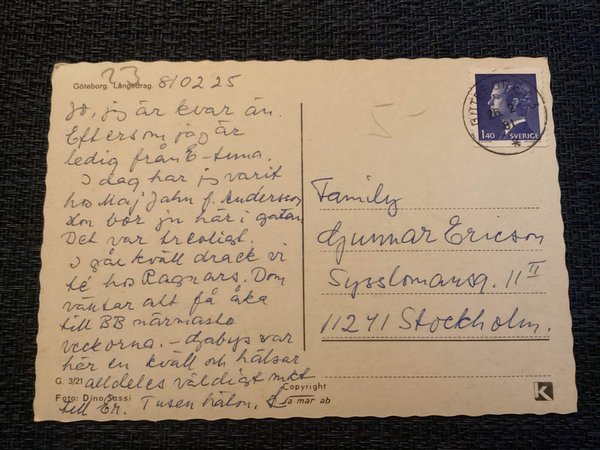 23
Göteborg. Långedrag. 810225
Jo, jag är kvar än.
Eftersom jag är
ledig från E-tuna.
I dag har jag varit
hos Maj Jahn f. Andersson
Hon bor ju här i gatan
Det var trevligt.
I går kväll drack vi
té hos Ragnars. Dom
väntar att få åka
till BB närmaste
veckorna. – var
här en kväll och hälsar
G. 3/21 alldeles väldigt mkt
Foto: Dino/Sassi
till Er. Tusen
Copyright
a-mar ab
5-
GÖTE
26
81
1.40 SVERIGE
Family
Gunnar Ericson
Sysslomansg. 11 II
11241 Stockholm.
K